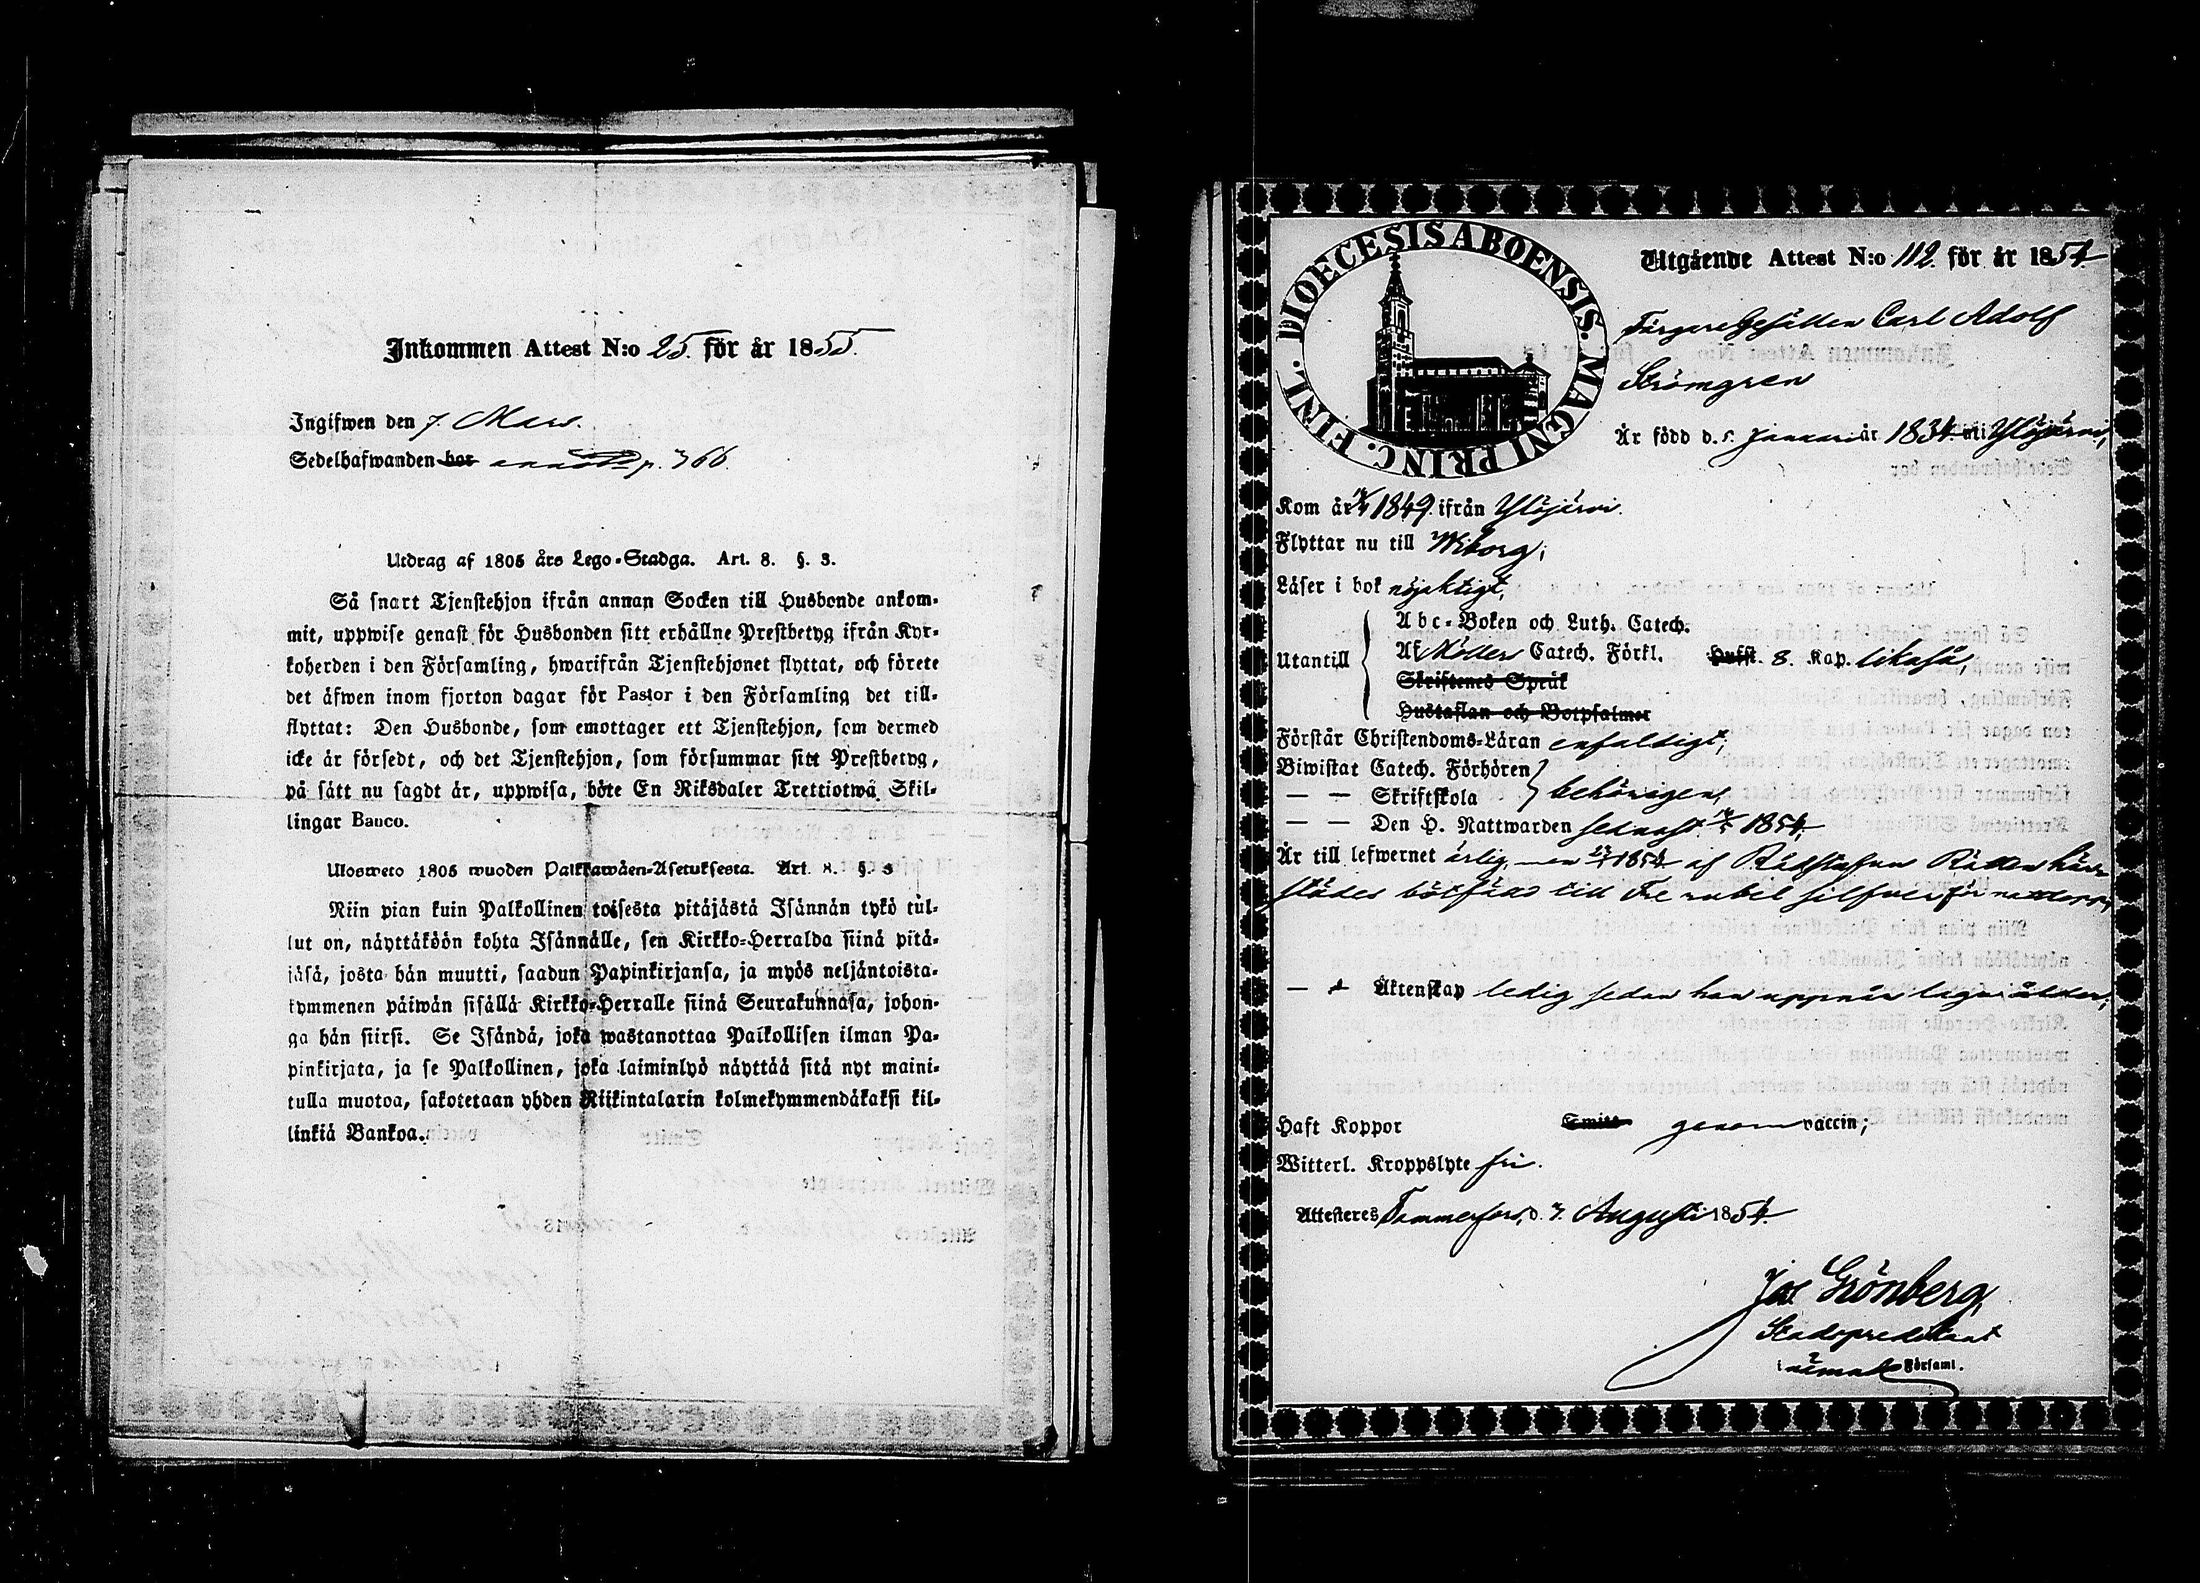 Inkommen Attest N:o 25. för år 1855.
Ingifwen den 7. Mars.
Sedelhafwanden har p. 366.
Utdrag af 1805 års Lego-Stadga. Art. 8. §. 3.
Så snart Tjenstehjon ifrån annan Socken till Husbonde ankom-
mit, uppwise genast för Husbonden sitt erhållne Prestbetyg ifrån Kyr-
koherden i den Församling, hwarifrån Tjenstehjonet flyttat, och förete
det äfwen inom fjorton dagar för Pastor i den Församling det till-
flyttat: Den Husbonde, som emottager ett Tjenstehjon, som dermed
icke är försedt, och det Tjenstehjon, som försummar sitt Prestbetyg,
på sätt nu sagdt är, uppwisa, böte En Riksdaler Trettiotwå Skil-
lingar Banco.
Ulosweto 1805 wuoden Palkkawäen-Asetuksesta. Art. 8. §. 3
Niin pian kuin Palkollinen toisesta pitäjästä Isännän tykö tul-
lut on, näyttäköön kohta Isännälle, sen Kirkko-Herralda siinä pitä-
jäsä, josta hän muutti, saadun Papinkirjansa, ja myös neljäntoista-
kymmenen päiwän sisällä Kirkko-Herralle siinä Seurakunnasa, johon-
ga hän siirsi. Se Isändä, joka wastanottaa Palkollisen ilman Pa-
pinkirjata, ja se Palkollinen, joka laiminlyö näyttää sitä nyt maini-
tulla muotoa, sakotetaan yhden Riikintalarin kolmekymmendäkaksi kil-
linkiä Bankoa.
DIOECESIS ABOENSIS. MAGNI PRINC. FINL.
Utgående Attest N:o 112. för år 1854.
FärgareGesällen Carl Adolf
Strömgren
Är född d. 5. Januari år 1834. uti Ylöjärvi,
Kom år 1849. ifrån Ylöjärvi.
Flyttar nu till Wiborg;
Läser i bok nöjaktigt,
Utantill
Abc-Boken och Luth. Catech.
Af Möllers Catech. Förkl. Hufst. 8. Kap. likaså,
Skriftenes Språk
Hustaflan och Botpsalmer
Förstår Christendoms-Läran enfaldigt;
Biwistat Catech. Förhören
— — Skriftskola behörigen,
— — Den H. Nattwarden sednast 1854;
Är till lefwernet ärlig, men 1854 af Rådstufvu Rätten här-
städes bötfäld till Tre rubel silfver för
— — Äktenskap ledig sedan han uppnår laga ålder;
Haft Koppor Smitt genom vaccin;
Witterl. Kroppslyte fri.
Attesteres Tammerfors, d. 3. Augusti 1854.
Jos Grönberg,
Stadspredikant
i nämnde Församl.